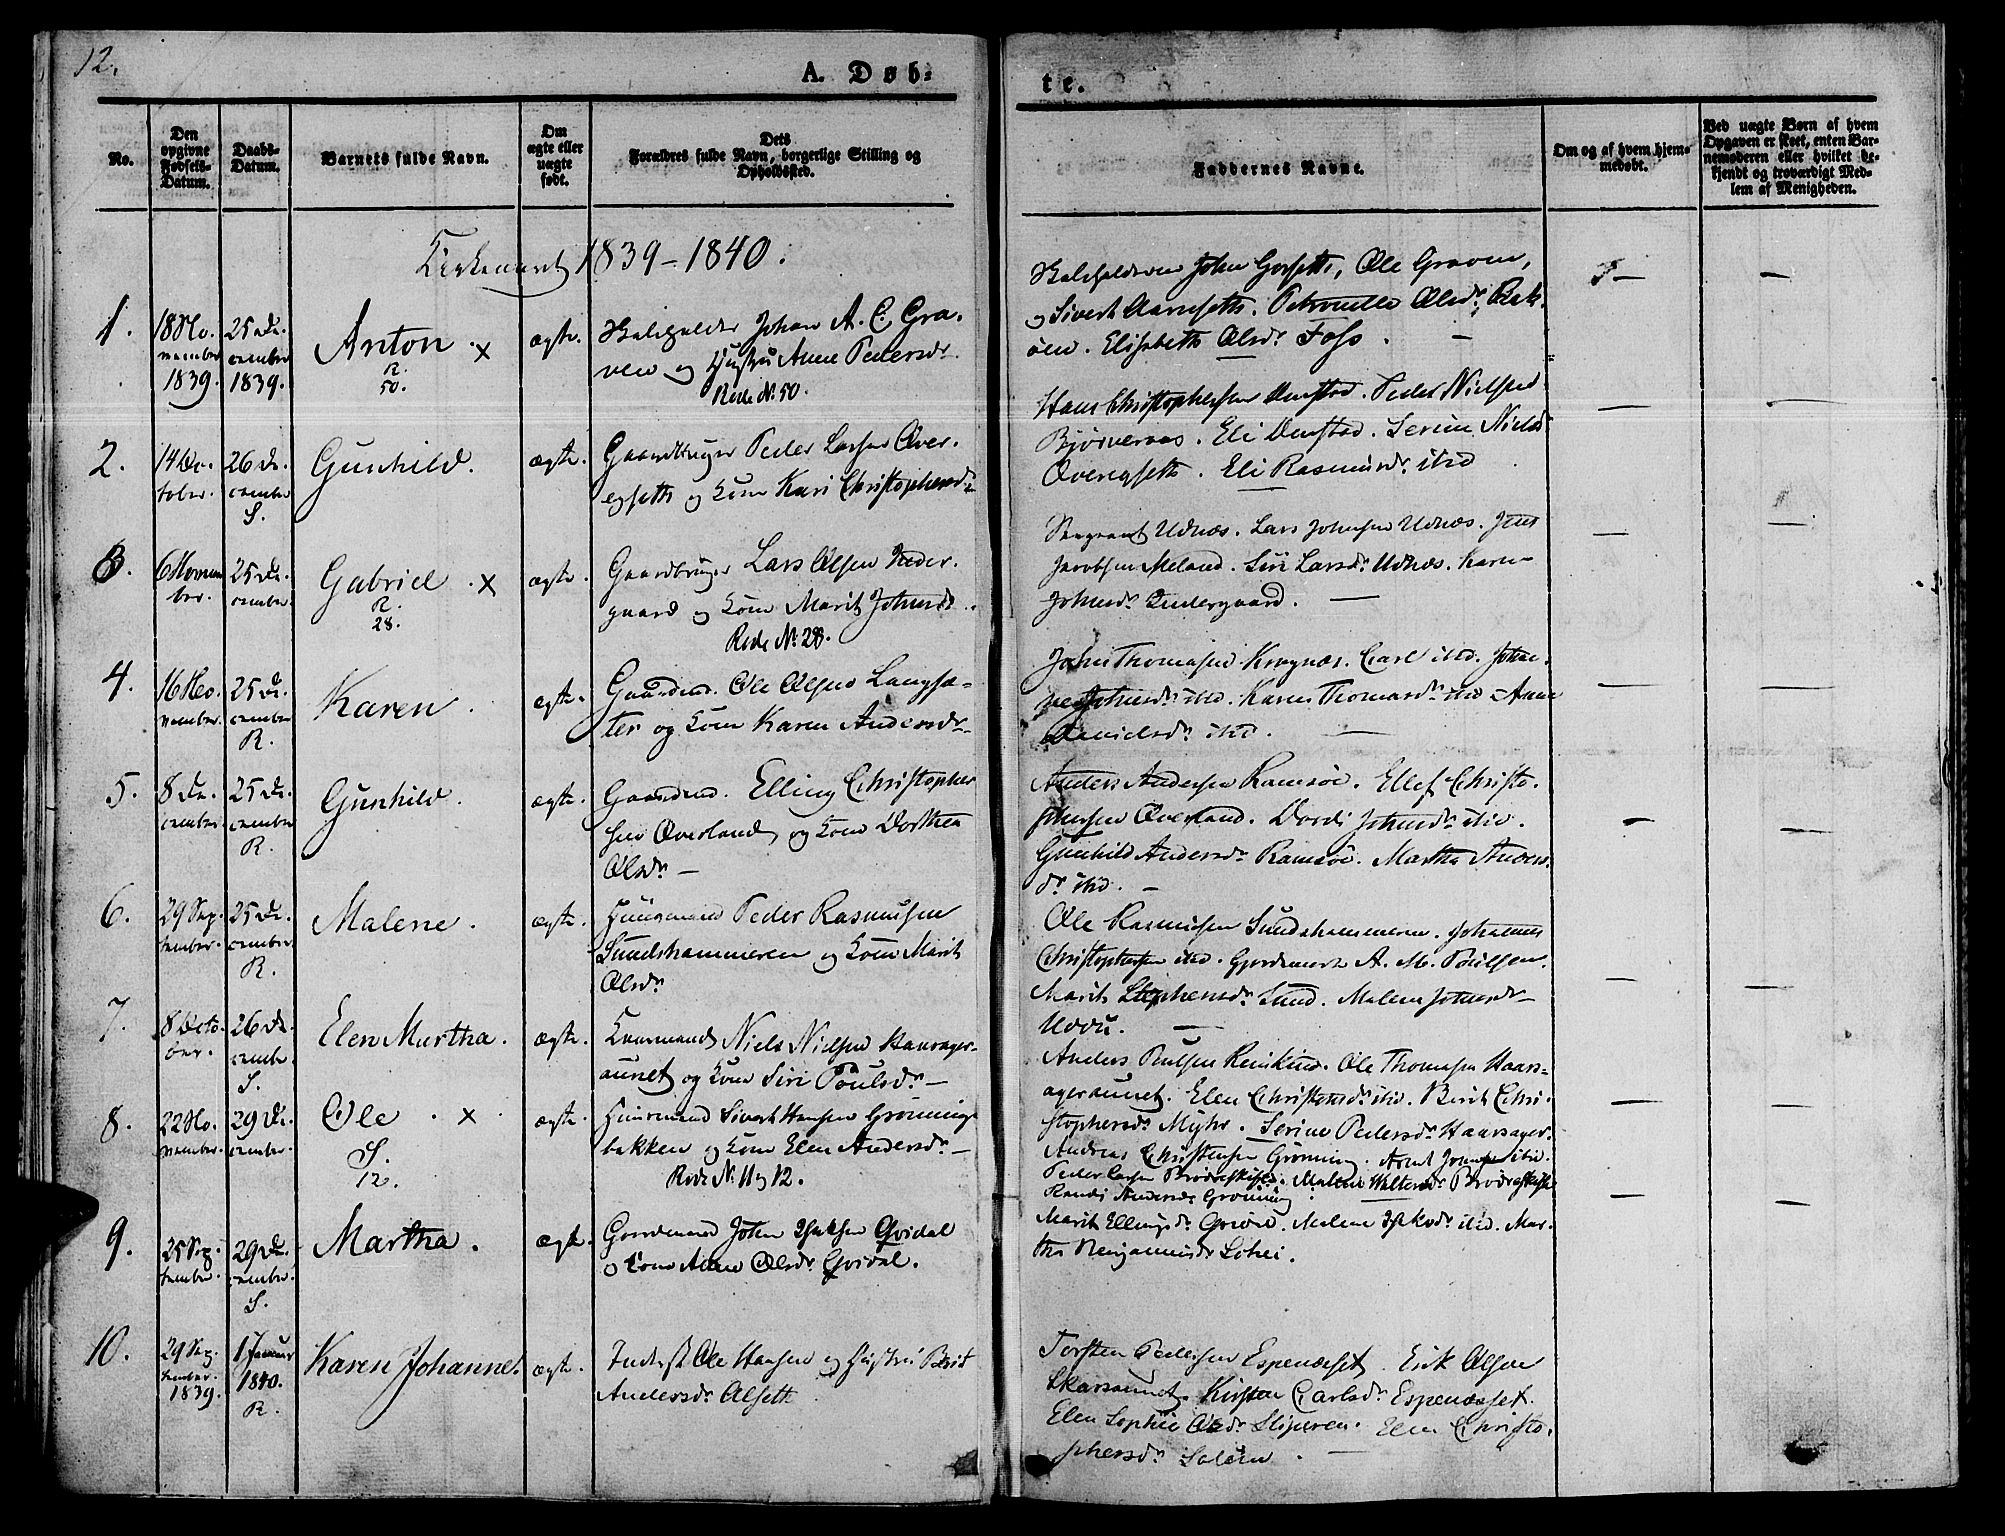 12.
A. Døb-
te.
No.
Den opgivne Fødsels-Datum.
Daabs-Datum.
Barnets fulde Navn.
Om ægte eller uægte født.
Dets Forældres fulde Navn, borgerlige Stilling og Opholdssted.
Faddernes Navne.
Om og af hvem hjem-
medøbt.
Ved uægte Børn af hvem
Opgaven er skeet, enten Bar-
nemoderen eller hvilket be-
kjendt og troværdigt Med-
lem af Menigheden.
Kirkeaaret 1839-1840.
1.
18 No-
vember
1839.
25 De-
cember
1839.
Anton. x
R.
50.
ægte.
Johan A. C. Gra-
ven og Hustru Anne Pedersdr.
Rode No. 50.
John Gorseth, Ole Graven,
og Sivert Aarnseth. Petronille Olsdr.
Elisabeth Olsdr. Foss.
2.
14 Oc-
tober.
26 De-
cember
S.
Gunhild.
ægte.
Gaardbruger Peder Larsen Over-
egseth og Kone Kari Christophersdr.
Hans Christophersen Peder Nielsen
Eli Serine Nielsdr.
Overegseth. Eli Rasmusdr. ibid
3.
6 Novem-
ber.
25 De-
cember.
Gabriel. x
R.
28.
ægte.
Gaardbruger Lars Olsen Neder-
gaard og Kone Marit Johnsdr.
Rode No. 28.
Sergeant Udnæs. Lars Johnsen Udnæs. Jens
Jacobsen Meland. Siri Larsdr. Udnæs. Karen
Johnsdr. Nedergaard.
4.
16 No-
vember.
25 De-
cember
R.
Karen.
ægte.
Gaardmd. Ole Olsen Langsæ-
ter og Kone Karen Andersdr.
John Thomasen Kragnæs. Carl ibid.
Johnsdr. ibid. Karen Thomasdr. ibid Anne
Danielsdr. ibid.
5.
8 De-
cember.
25 De-
cember
R.
Gunhild.
ægte.
Gaardmd. Elling Christopher
sen Overland og Kone Dorthea
Olsdr.
Anders Andersen Ramsøe. Ellef Christo-
phersen Overland. Dordi Johnsdr. ibid.
Gunhild Andersdr. Ramsøe. Martha Anders-
dr. ibid.
6.
29 Sep-
tember.
25 De-
cember.
R.
Malene.
ægte.
Huusmand Peder Rasmusen
Sundshammeren og Kone Marit
Olsdr.
Ole Rasmusen Sundshammeren. Johannes
Christophersen ibid. A. M. Poulsen.
Marit Stephensdr. Sund. Malene Johnsdr.
7.
8 Octo-
ber.
26 De-
cembr.
S.
Elen Martha.
ægte.
Niels Nielsen Haarsager-
aunet og Kone Siri Poulsdr.
Anders Poulsen Ole Thomasen Haars-
ageraunet. Elen Christensdr. ibid. Berit Chri-
stophersdr. Myhr. Serine Pedersdr. Haarsager.
8.
22 No-
vember.
29 De-
cember.
Ole. x
S.
12.
ægte.
Huusmand Sivert Hansen Grønnings-
bakken og Kone Elen Andersdr.
Rode No. 11 og 12.
Andreas Christensen Grønning. Arnt Johnsen ibid.
Peder Larsen Malene Waltersdr.
Randi Andersdr. Grønning
9.
25 Sep-
tember.
29 De-
cember.
S.
Martha.
ægte.
Gaardmand John Isaksen Qvidal
og Kone Anne Olsdr. Qvidal.
Marit Ellingsdr. Malene Isaksdr. ibid. Mar-
tha Benjaminsdr.
10.
29 Sep-
tember.
1839.
1 Januar
1840.
R.
Karen Johanne.
ægte.
Inderst Ole Hansen og Hustru Berit
Andersdr. Olseth
Torsten Pedersen Espenæset. Erik Olsen
Skarsaunet. Kirsten Carlsdr. Espenæset.
Elen Sophie Olsdr. Elen Christo-
phersdr.